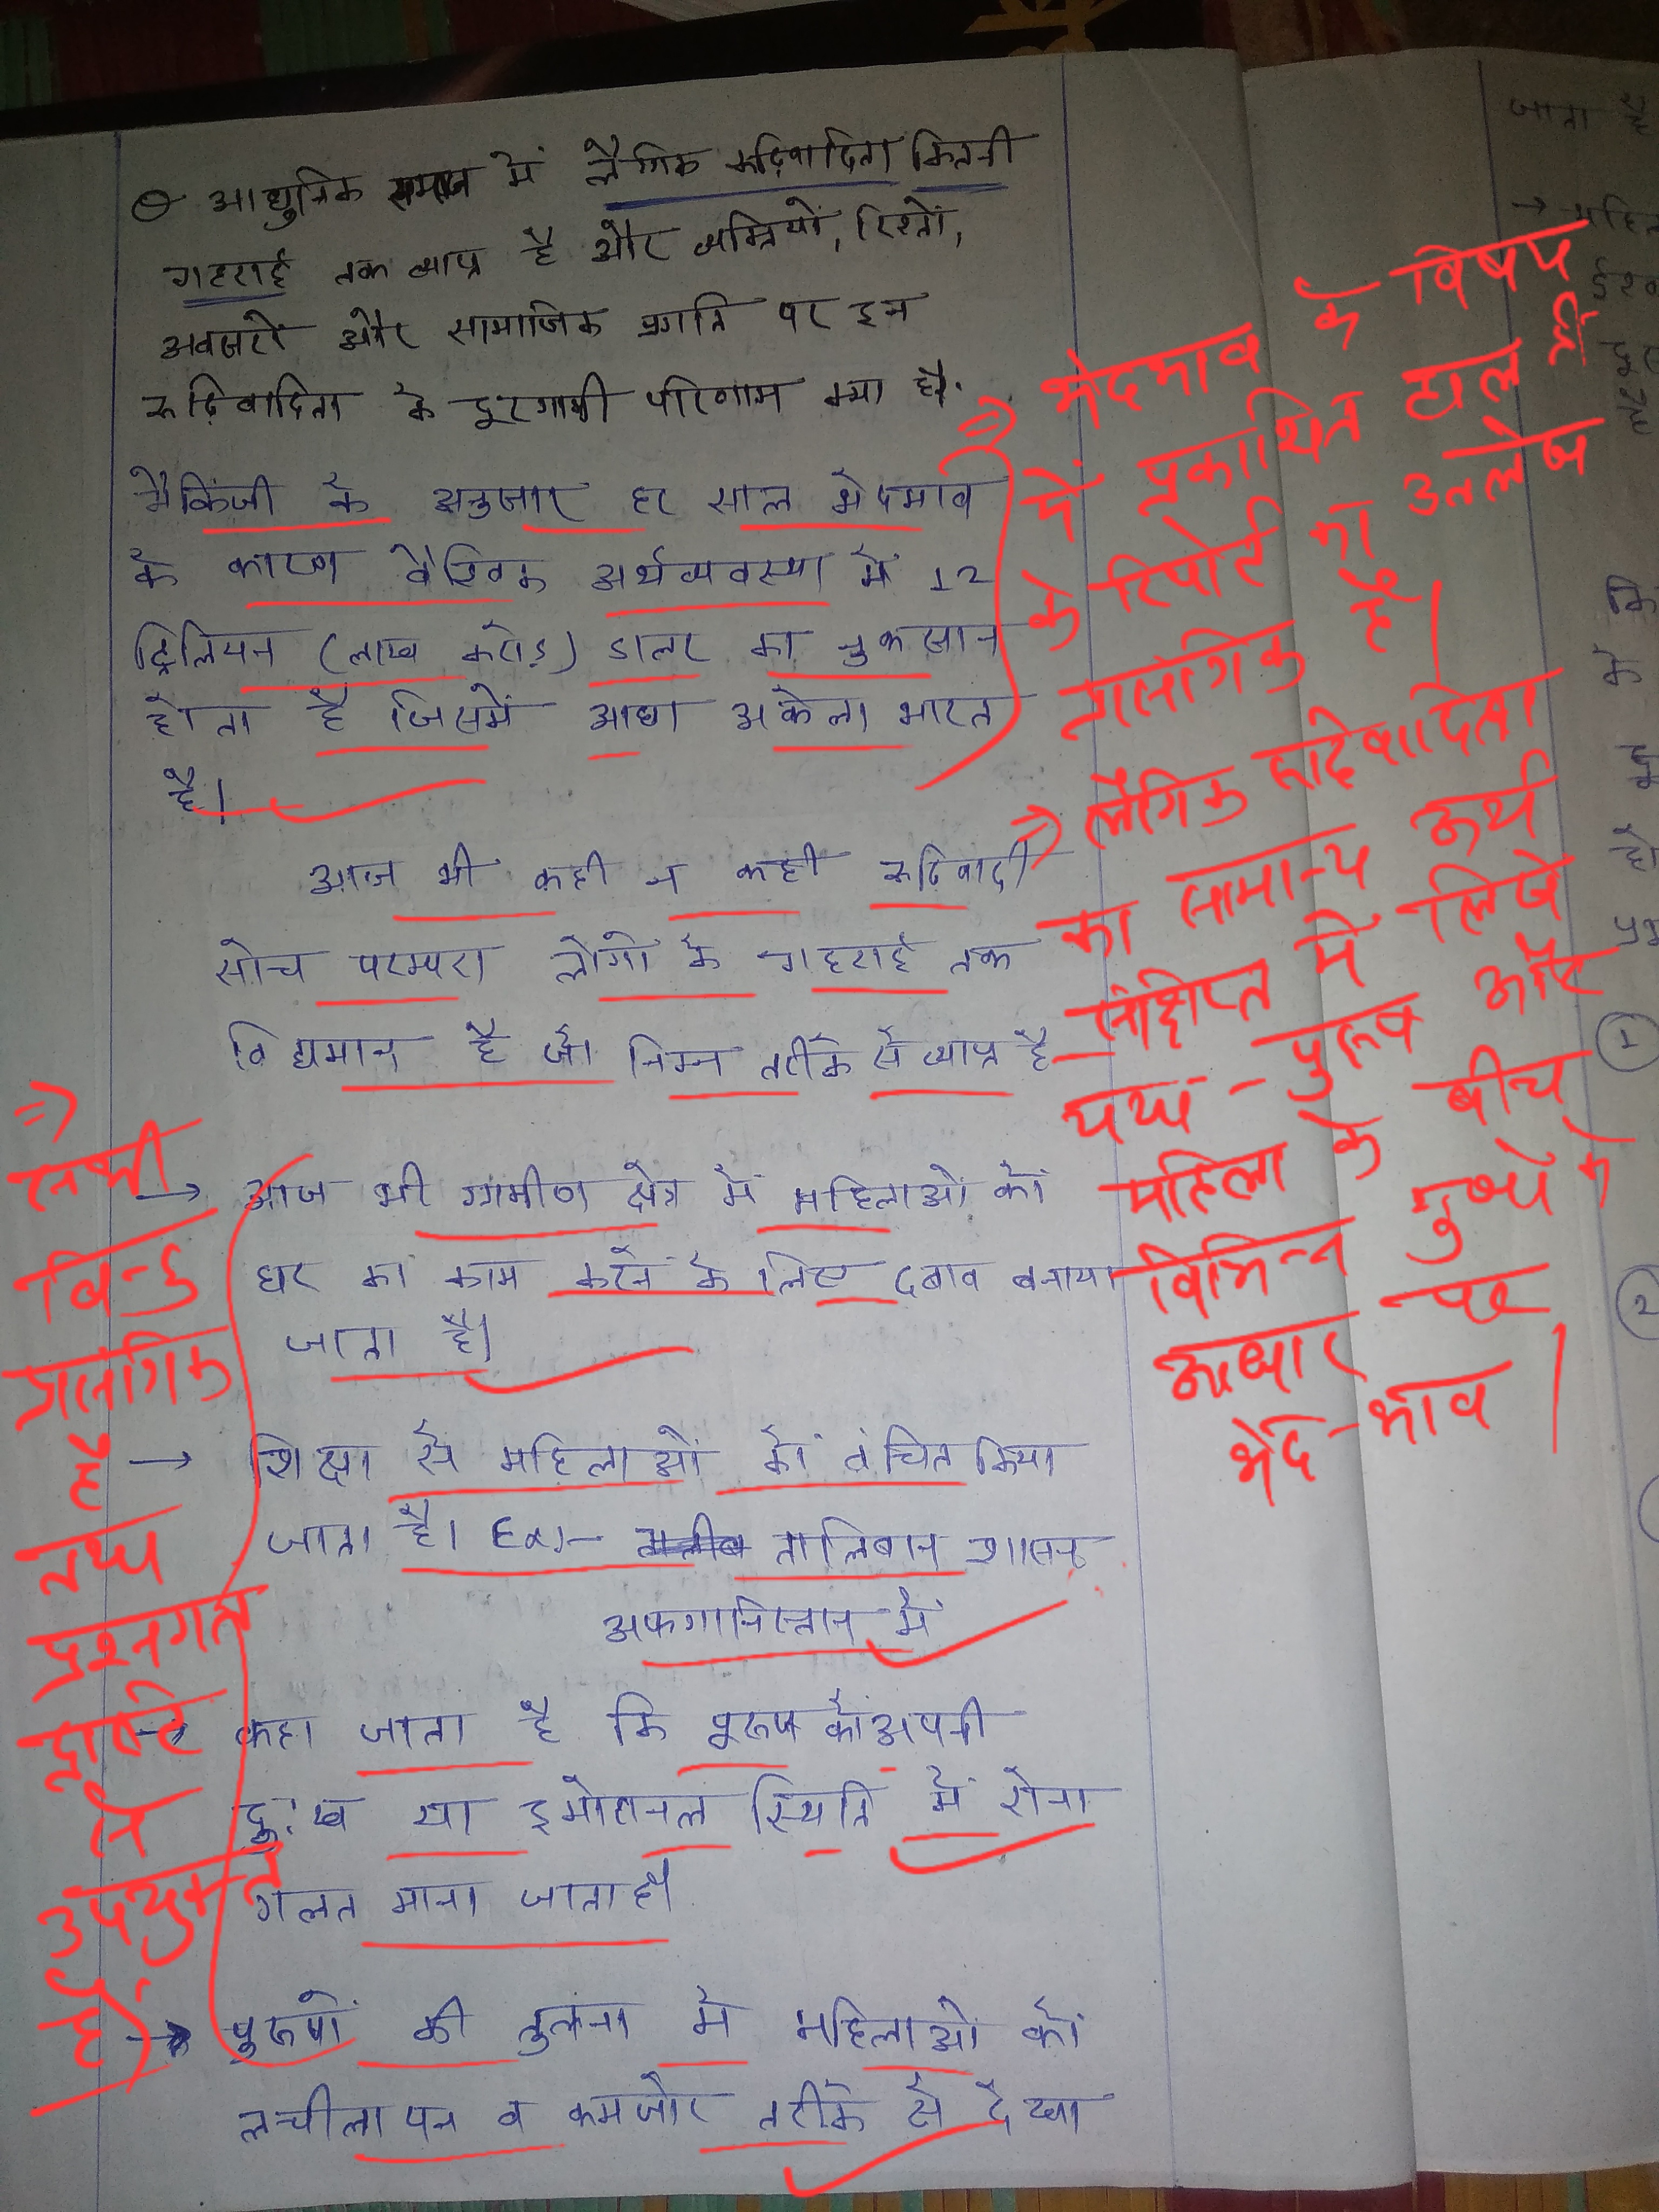 आधुनिक समाज में लैंगिक रूढ़िवादिता कितनी
गहराई तक व्याप्त है और व्यक्तियों, रिश्तों,
अवसरों और सामाजिक प्रगति पर इन
रूढ़िवादिता के दूरगामी परिणाम क्या है।
मैकिंजी के अनुसार हर साल भेदभाव
के कारण वैश्विक अर्थव्यवस्था में 12
ट्रिलियन (लाख करोड़) डालर का नुकसान
होता है जिसमें आधा अकेला भारत
है।
आज भी कही न कही रूढ़िवादी
सोच परम्परा लोगो के गहराई तक
विद्यमान है जो निम्न तरीके से व्याप्त है
→ आज भी ग्रामीण क्षेत्र में महिलाओं को
घर का काम करने के लिए दबाव बनाया
जाता है।
→ शिक्षा से महिलाओं को वंचित किया
जाता है। Ex:- तालिबान शासन
अफगानिस्तान में
→ कहा जाता है कि पुरूष को अपनी
दु:ख या इमोशनल स्थिति में रोना
गलत माना जाता है।
→ पुरूषों की तुलना में महिलाओं को
लचीलापन व कमजोर तरीके से देखा
⇒ भेदभाव के विषय
में प्रकाशित हाल ही
के रिपोर्ट का उल्लेख
प्रासंगिक है।
⇒ लैंगिक रूढ़िवादिता
का सामान्य अर्थ
संक्षिप्त में लिखें
यथा - पुरूष और
महिला के बीच
विभिन्न मुद्दों के
आधार पर
भेद-भाव।
⇒
सभी
बिन्दु
प्रासंगिक
है
तथा
प्रश्नगत
दृष्टि
से
उपयुक्त
है।
जाता है
→
के
1
2